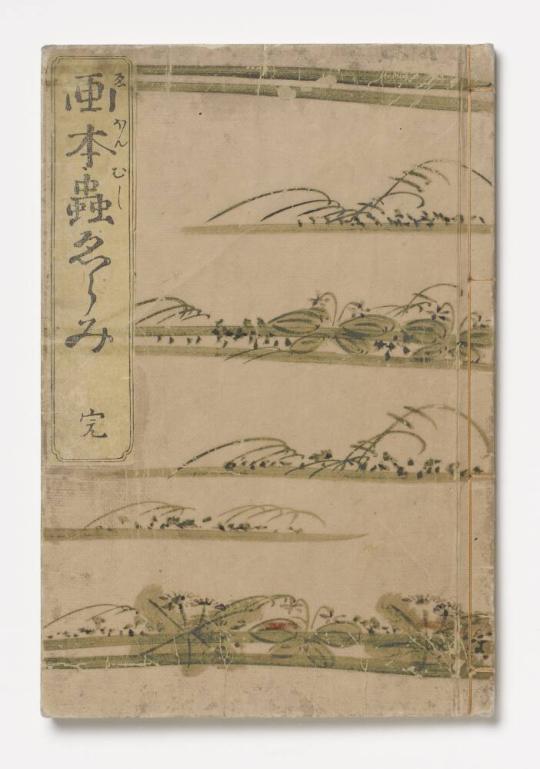 画本蟲ゑらみ
ゑほんむし
完